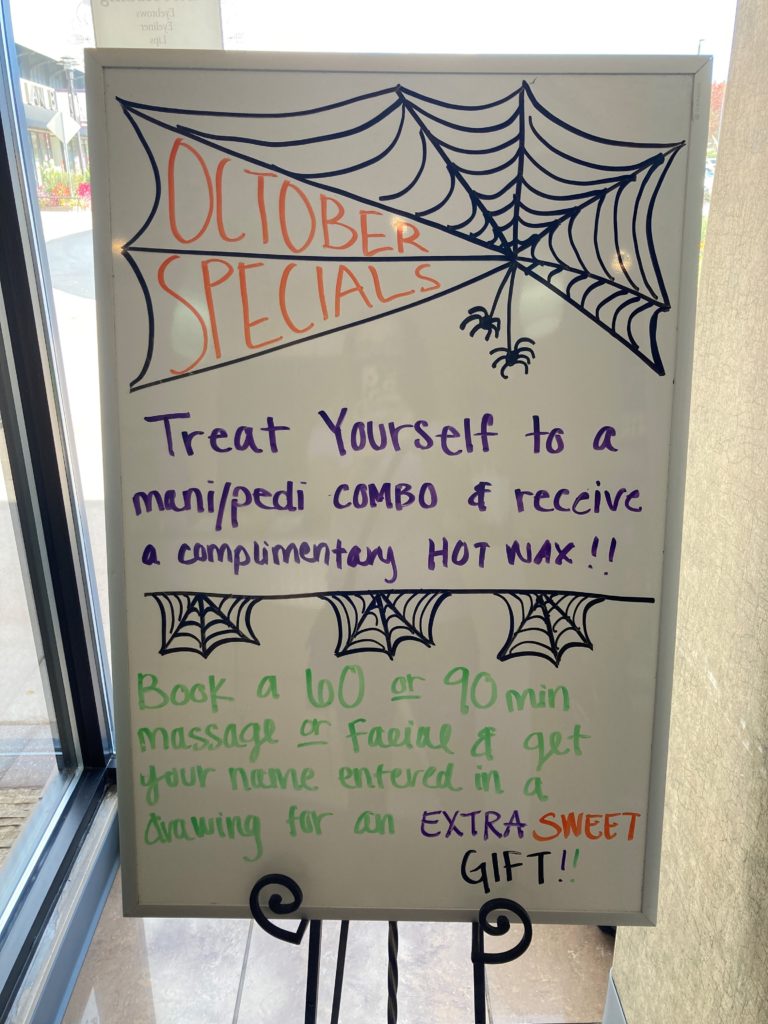 Eyebrows
Eyeliner
Lips
OCTOBER
SPECIALS
Treat Yourself to a
mani/pedi COMBO & receive
a complimentary HOT WAX!!
Book a 60 or 90 min
massage or Facial & get
your name entered in a
drawing for an EXTRA SWEET
GIFT!!